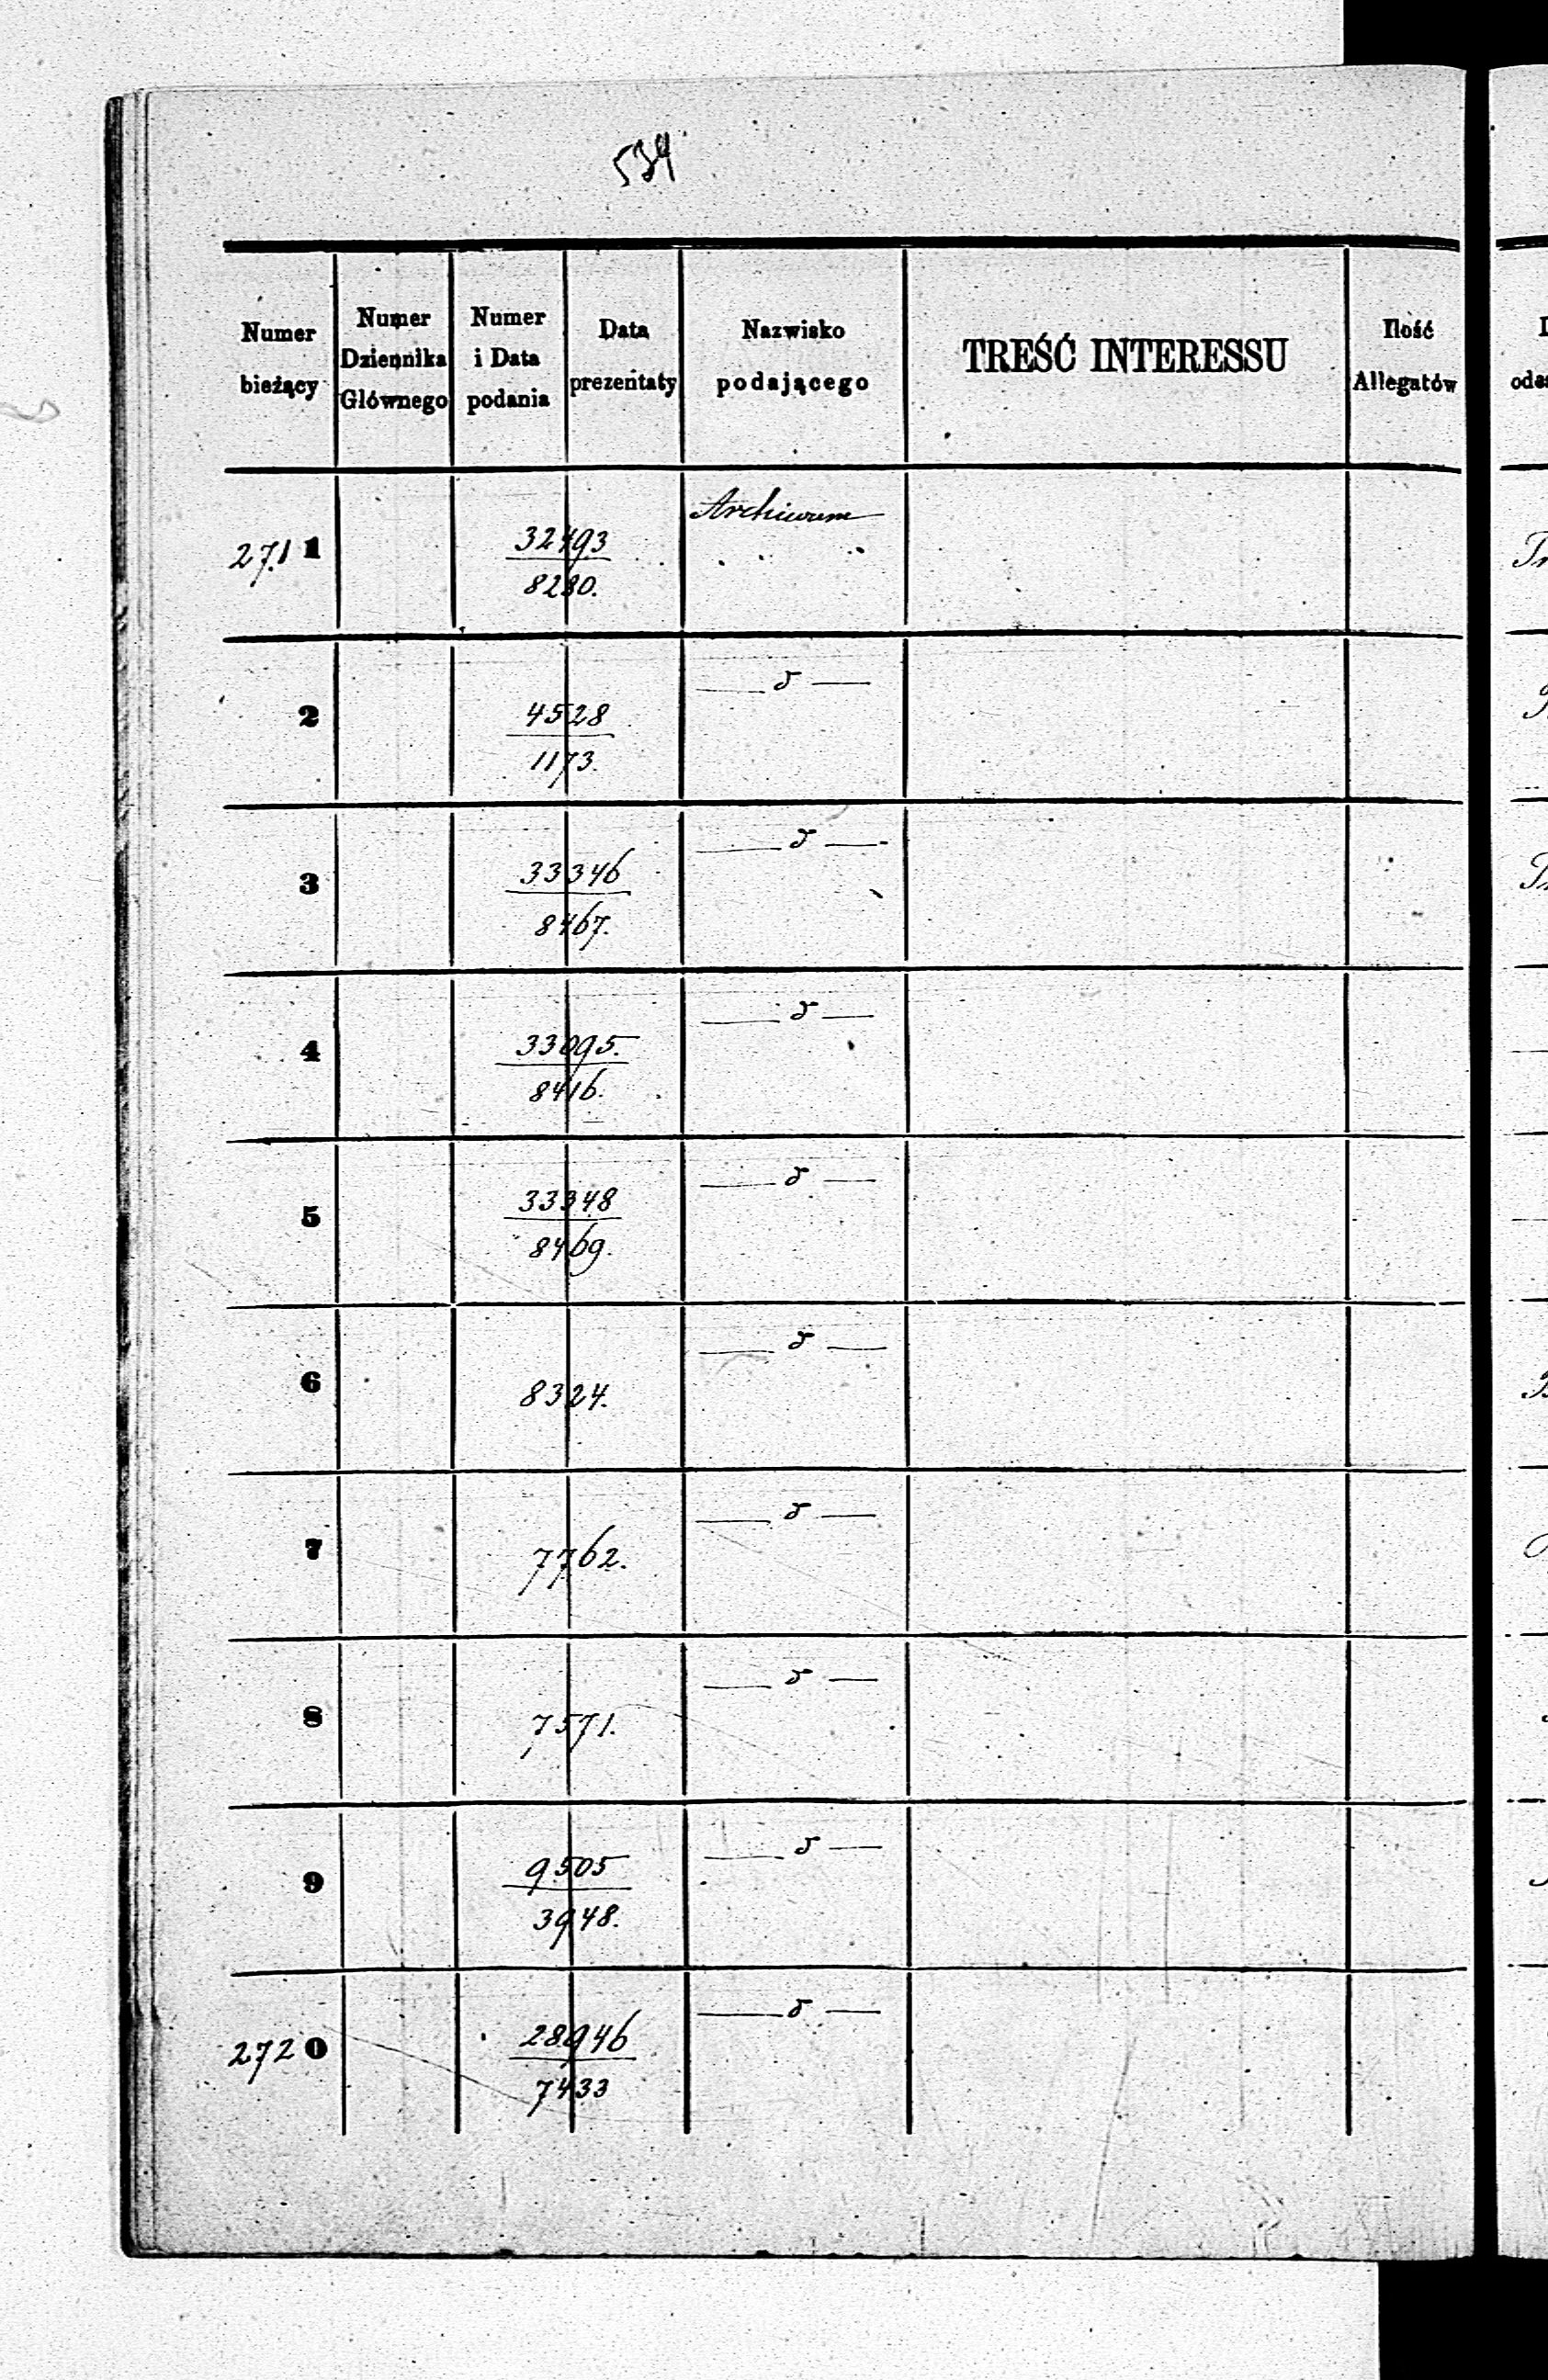 534
Numer bieżący
Numer Dziennika Głównego
Numer i Data podania
Data prezentaty
Nazwisko podającego
TREŚĆ INTERESSU
Ilość Allegatów
2711
32493
8280.
Archiwum
2
4528
1173.
3
33346
8467.
4
33095.
8416.
5
33348
8469.
6
8324.
7
7762.
8
7571.
9
9505
3948.
2720
28946
7433